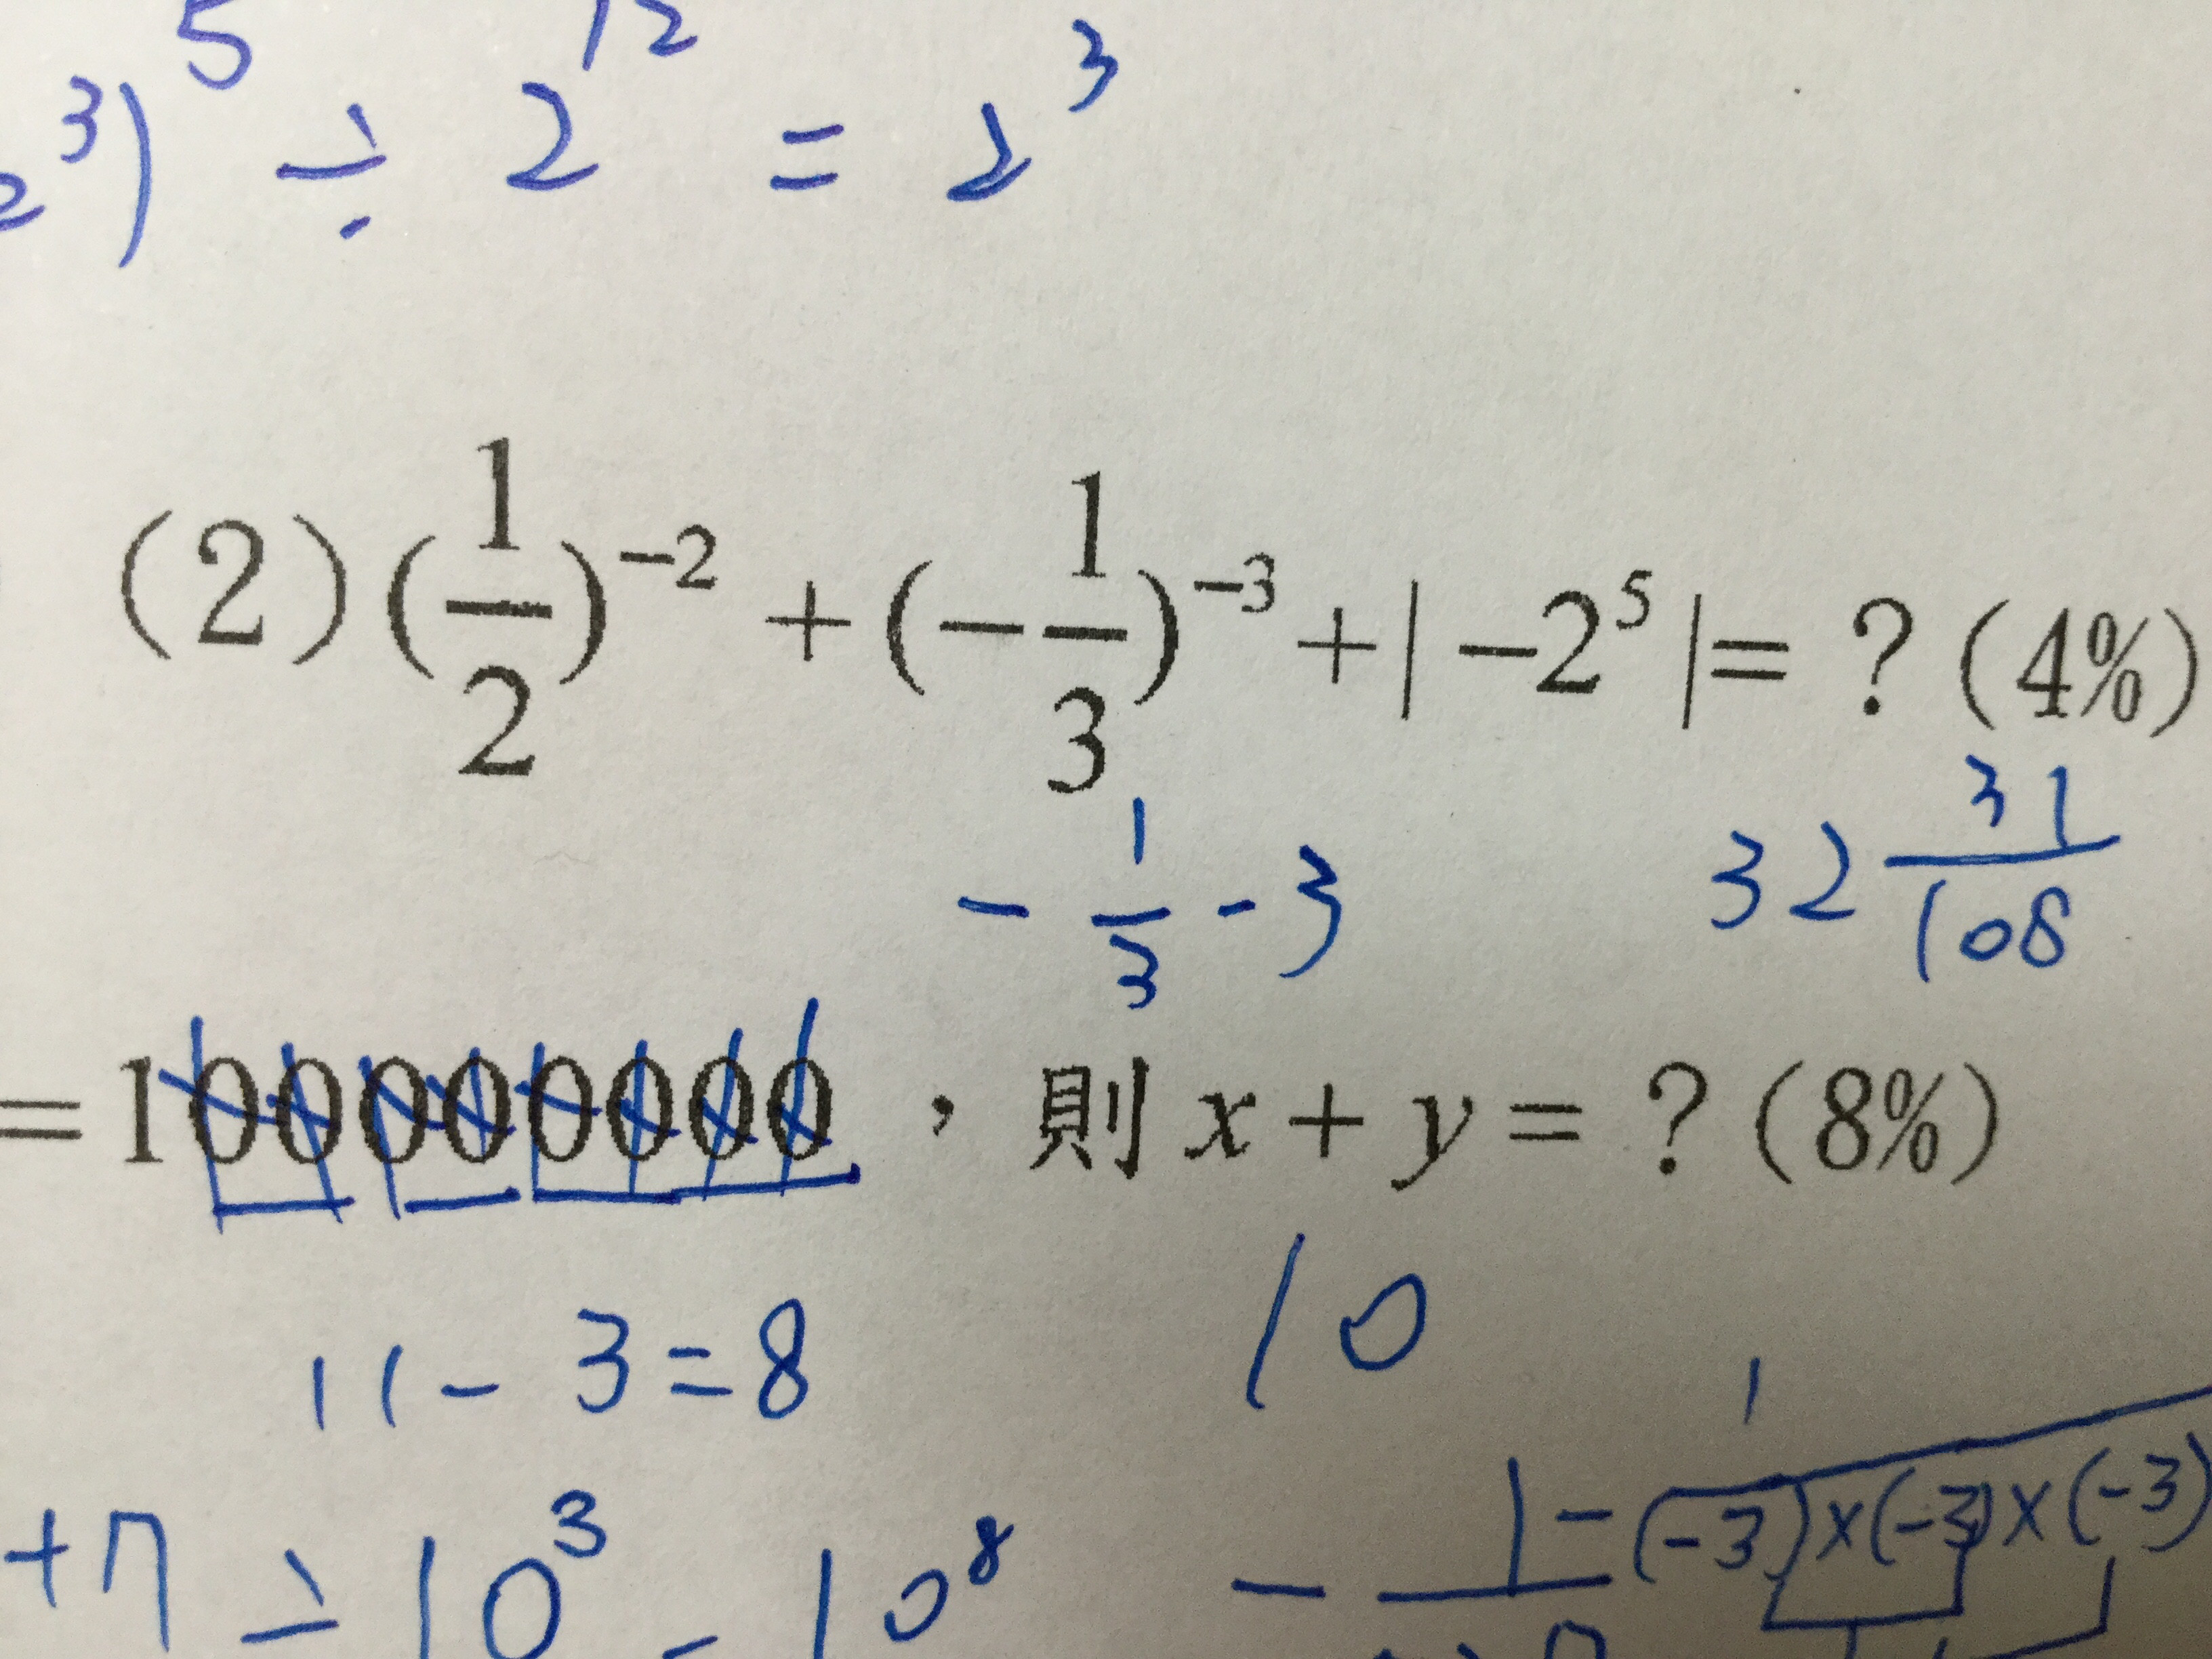 2³)⁵ ÷ 2¹² = 2³
(2) (1/2)⁻² + (−1/3)⁻³ + |−2⁵| = ? (4%)
− 1/3 − 3
32 31/108
= 100000000，則 x + y = ? (8%)
11 − 3 = 8
10
(−3)×(−3)×(−3)